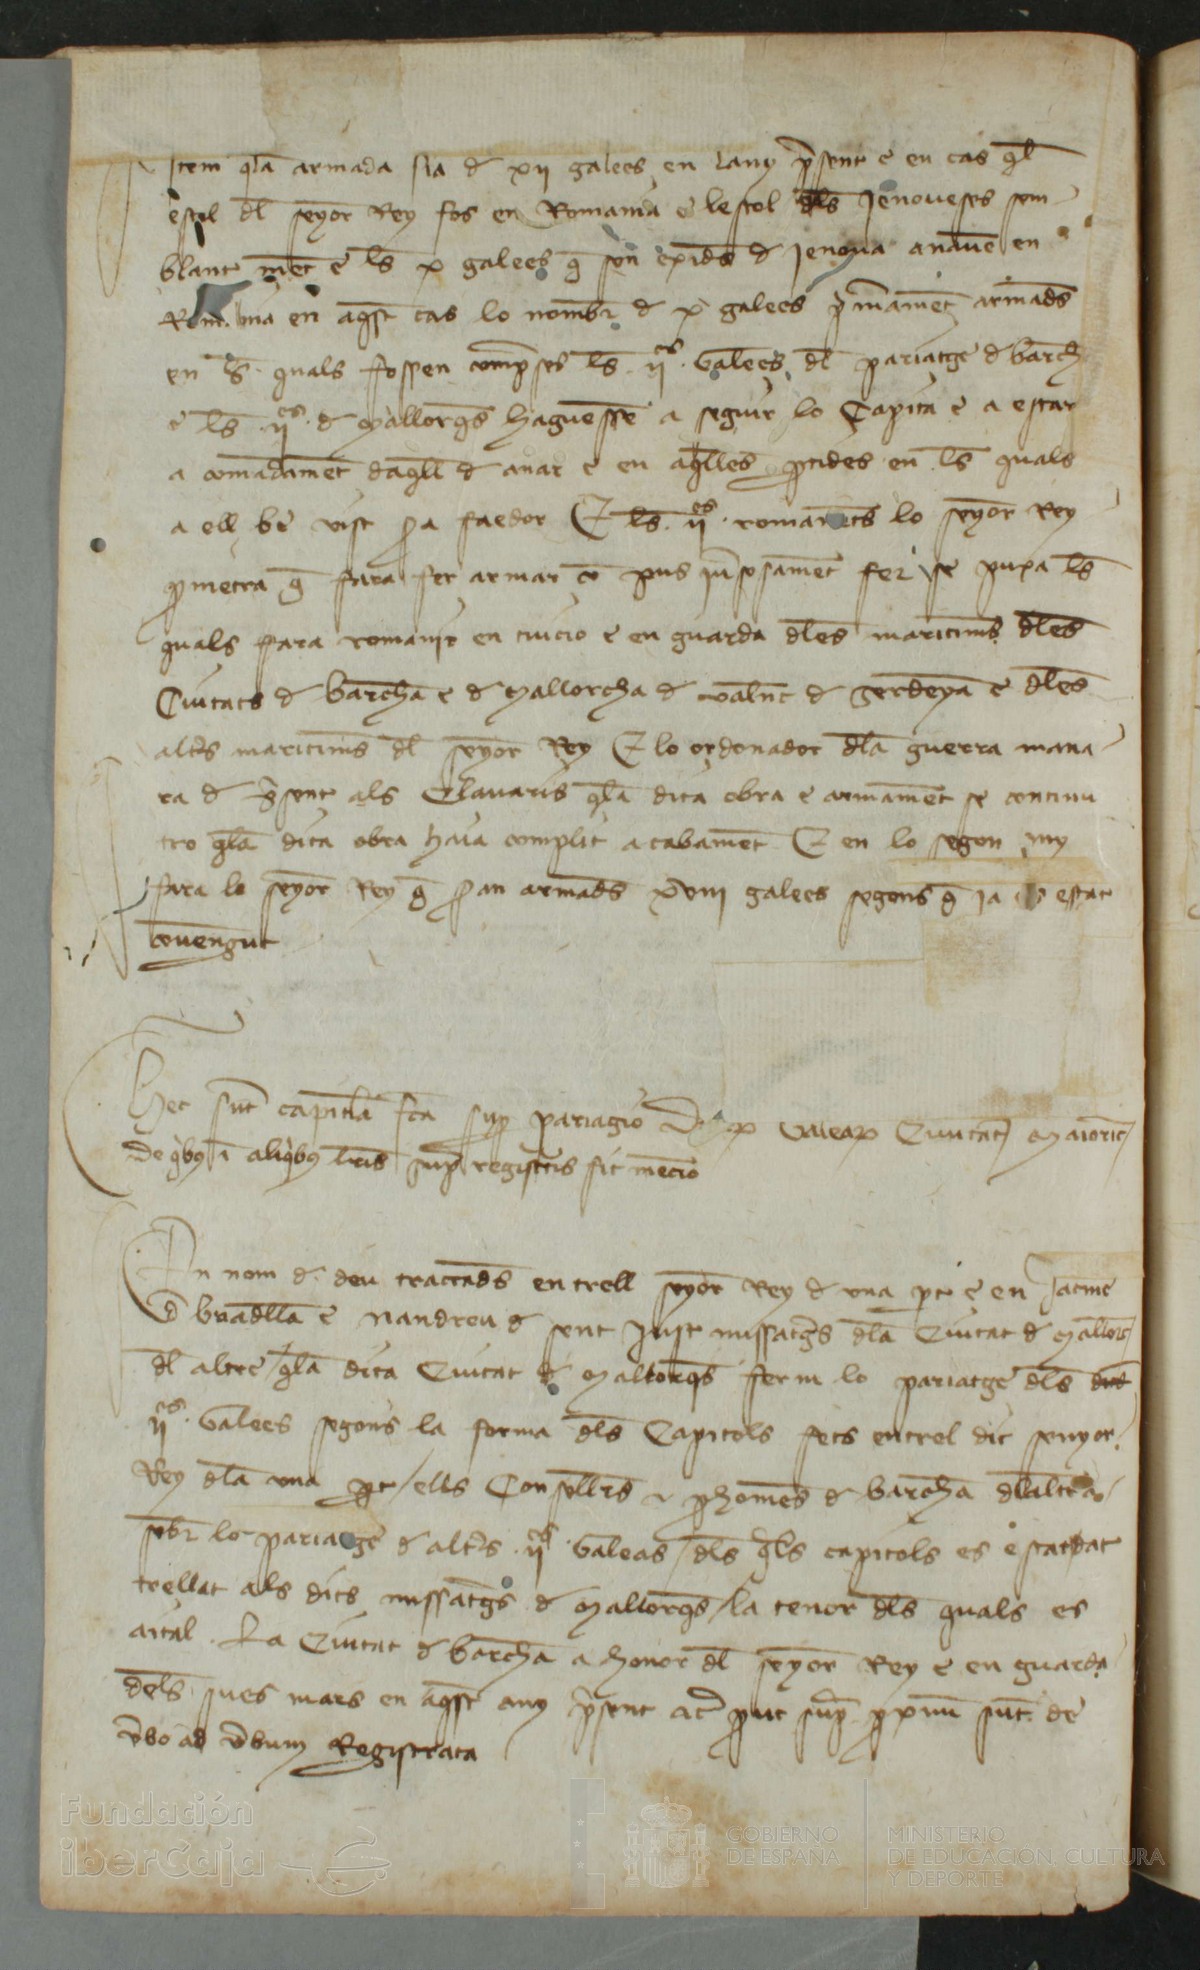 Item q̄la armada sia d̄ xii galees en lany p̄sent e en cas q̄l
estol dl̄ seyor Rey fos en Romania e lestol dls̄ Jenoueses sem
blant met̄ e ls̄ x galees q̄ son exides d̄ Jenoua anauē en
Romania en aq̄st cas lo nombr̄ d̄ x galees p̄mamēt armads̄
en ls̄ quals fossen comp̄ses ls̄ .ii.es Galees dl̄ pariatge d̄ barch̄
e ls̄ .ii.es d̄ Mallorq̄s haguessē a seguir lo Capita e a estar
a comādamēt daq̄ll d̄ anar e en aq̄lles p̄tides en ls̄ quals
a ell be vist sꝑa faedor E ls̄ .ii.es romanēts lo seyor Rey
ꝓmetra q̄ fara fer armar co pus fer se puxa ls̄
quals fara romanir en e en guarda dl̄es maritim̄s dl̄es
Ciutats d̄ barch̄a e d̄ Mallorcha d̄ valn̄c d̄ Serdeya e dl̄es
altr̄s maritim̄s dl̄ seyor Rey E lo ordonador dl̄a guerra mana
ra d̄ p̄sent als Clauaris q̄la dita obra e armamēt se continu
tro q̄la dita obra haia complit acabamēt E en lo segon any
fara lo seyor Rey q̄ sꝑan armads̄ xviii galees segons q̄ ja es estat
couengut
Hec sūt capitl̄a fc̄a suꝑ pariagio Galeaꝝ Ciuitat̄ Maioric̄
de q̄bꝰ ī aliq̄bꝰ lr̄is sup̄ registr̄is fit mēcio
En nom d̄ deu tractads̄ entrell seyor Rey d̄ una ꝑt e en Jacme
d̄ e nandreu d̄ sent Just missatḡs dl̄a Ciutat d̄ Mallorc̄
dl̄ altre / q̄la dita Ciutat d̄ Mallorq̄s ferm lo pariatge dls̄ dits
.ii.es Galees segons la forma dls̄ Capitols fets entrel dit senyor
Rey dl̄a una ꝑt / ells Consellr̄s e ꝓhomēs d̄ barch̄a dl̄altra
sobr̄ lo pariatge d̄ altr̄s .ii.es Galeas / dls̄ q̄ls capitols es estat dat
trellat als dits missatḡs d̄ Mallorq̄s / la tenor dls̄ quals es
aital . La Ciutat d̄ barch̄a a honor dl̄ seyor Rey e en guarda
dels sues mars en aq̄st any p̄sent ꝓut sup̄ ꝓxim̄ sūt de
v̄bo ad v̄bum Registrata
Fundación
iberCaja
GOBIERNO
DE ESPAÑA
MINISTERIO
DE EDUCACIÓN, CULTURA
Y DEPORTE